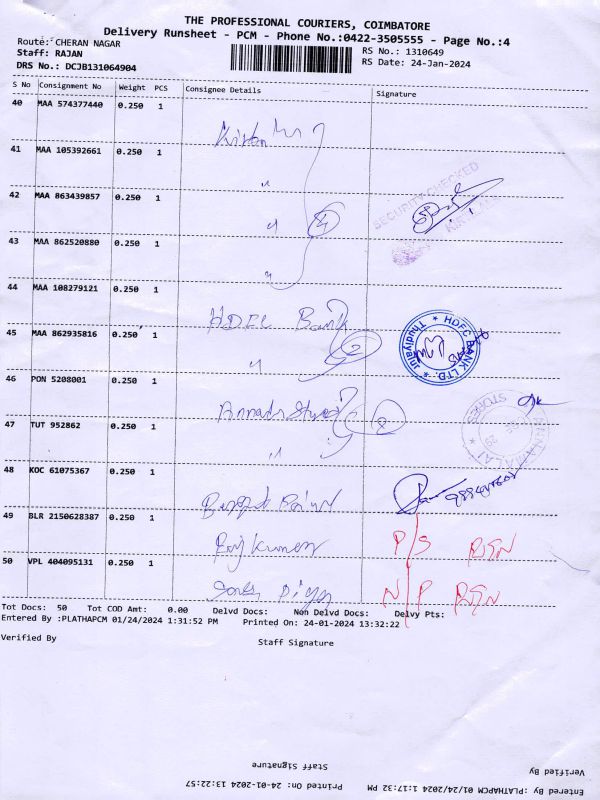 THE PROFESSIONAL COURIERS, COIMBATORE
Delivery Runsheet - PCM - Phone No.:0422-3505555 - Page No.:4
Route: CHERAN NAGAR
RS No.: 1310649
Staff: RAJAN
RS Date: 24-Jan-2024
DRS No.: DCJB131064904
S No Consignment No Weight PCS Consignee Details Signature
40 MAA 574377440 0.250 1
41 MAA 105392661 0.250 1
"
42 MAA 863439857 0.250 1
" 4
SECURITY CHECKED
43 MAA 862520880 0.250 1
"
44 MAA 108279121 0.250 1
HDFC Bank
HDFC BANK LTD. * Thudiyalur *
45 MAA 862935816 0.250 1
" 2
46 PON 5208001 0.250 1
2
STORES
47 TUT 952862 0.250 1
"
48 KOC 61075367 0.250 1
49 BLR 2150628387 0.250 1
Raj Kumar P/S RTN
50 VPL 404095131 0.250 1
N/P RTN
Tot Docs: 50 Tot COD Amt: 0.00 Delvd Docs: Non Delvd Docs: Delvy Pts:
Entered By :PLATHAPCM 01/24/2024 1:31:52 PM Printed On: 24-01-2024 13:32:22
Verified By Staff Signature
Verified By Staff Signature
Entered By :PLATHAPCM 01/24/2024 1:17:32 PM Printed On: 24-01-2024 13:22:57